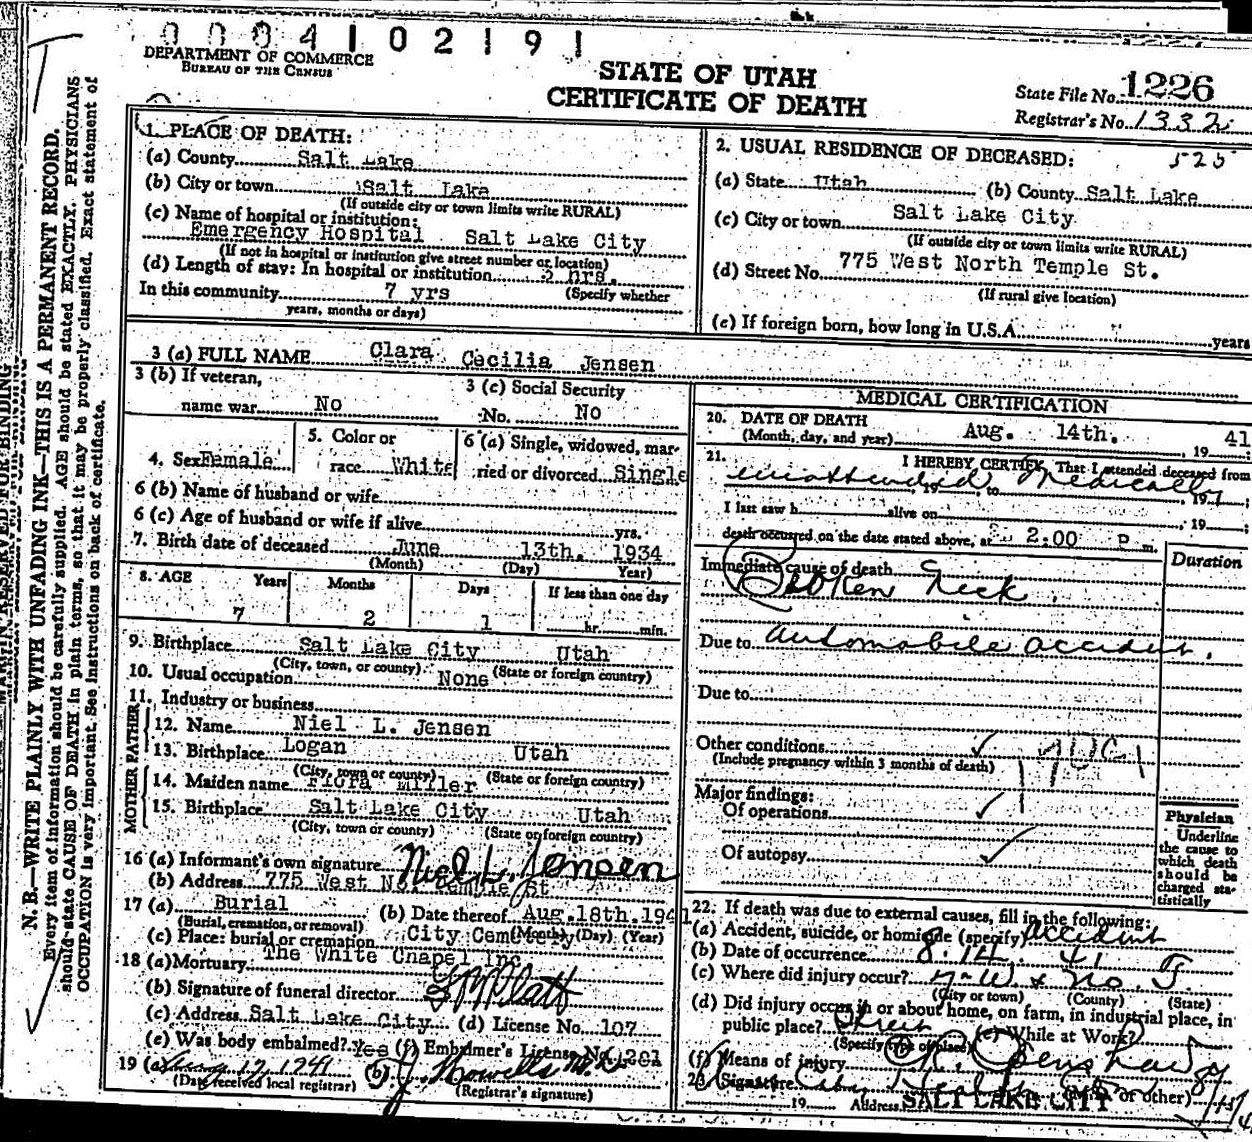 0004102191
DEPARTMENT OF COMMERCE
BUREAU OF THE CENSUS
STATE OF UTAH
CERTIFICATE OF DEATH
State File No. 1226
Registrar's No. 1332
N. B.—WRITE PLAINLY WITH UNFADING INK—THIS IS A PERMANENT RECORD.
Every item of information should be carefully supplied. AGE should be stated EXACTLY. PHYSICIANS
should state CAUSE OF DEATH in plain terms, so that it may be properly classified. Exact statement of
OCCUPATION is very important. See instructions on back of certificate.
1. PLACE OF DEATH:
(a) County Salt Lake
(b) City or town Salt Lake
(If outside city or town limits write RURAL)
(c) Name of hospital or institution:
Emergency Hospital Salt Lake City
(If not in hospital or institution give street number or location)
(d) Length of stay: In hospital or institution 2 hrs.
In this community 7 yrs (Specify whether
years, months or days)
2. USUAL RESIDENCE OF DECEASED:
(a) State Utah (b) County Salt Lake
(c) City or town Salt Lake City
(If outside city or town limits write RURAL)
(d) Street No. 775 West North Temple St.
(If rural give location)
(e) If foreign born, how long in U.S.A. years
3 (a) FULL NAME Clara Cecilia Jensen
3 (b) If veteran,
name war No
3 (c) Social Security
No. No
4. Sex Female
5. Color or
race White
6 (a) Single, widowed, mar-
ried or divorced Single
6 (b) Name of husband or wife
6 (c) Age of husband or wife if alive yrs.
7. Birth date of deceased June 13th. 1934
(Month) (Day) Year)
8. AGE Years Months Days If less than one day
7 2 1 hr. min.
9. Birthplace Salt Lake City Utah
(City, town, or county) (State or foreign country)
10. Usual occupation None
11. Industry or business
FATHER
12. Name Niel L. Jensen
13. Birthplace Logan Utah
(City, town or county) (State or foreign country)
MOTHER
14. Maiden name Flora Miller
15. Birthplace Salt Lake City Utah
(City, town or county) (State or foreign country)
16 (a) Informant's own signature Niel L. Jensen
(b) Address 775 West No. Temple St
17 (a) Burial (b) Date thereof Aug.18th.1941
(Burial, cremation, or removal) (Month) (Day) (Year)
(c) Place: burial or cremation City Cemetery
18 (a) Mortuary The White Chapel Inc.
(b) Signature of funeral director
(c) Address Salt Lake City (d) License No. 107
(e) Was body embalmed? Yes (f) Embalmer's License No. 201
19 (a) Aug 17, 1941 (b)
(Date received local registrar) (Registrar's signature)
MEDICAL CERTIFICATION
20. DATE OF DEATH
(Month, day, and year) Aug. 14th. , 19 41
21. I HEREBY CERTIFY, That I attended deceased from
unattended Medically
, 19 , to , 19 ;
I last saw h alive on , 19 ;
death occurred on the date stated above, at 2:00 P m.
Duration
Immediate cause of death
Broken Neck.
Due to automobile accident.
Due to
Other conditions
(Include pregnancy within 3 months of death)
Major findings:
Of operations
Of autopsy
Physician
Underline
the cause to
which death
should be
charged sta-
tistically
22. If death was due to external causes, fill in the following:
(a) Accident, suicide, or homicide (specify) accident
(b) Date of occurrence 8-14-41
(c) Where did injury occur?
(City or town) (County) (State)
(d) Did injury occur in or about home, on farm, in industrial place, in
public place? Street (e) While at Work?
(Specify type of place)
(f) Means of injury
23. Signature (M.D. or other)
19 Address SALT LAKE CITY